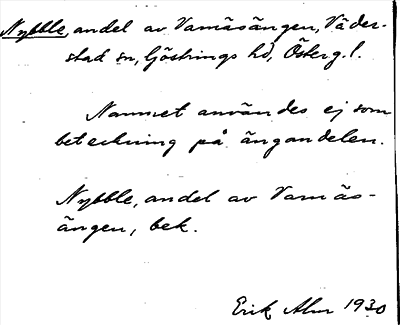 Nybble, andel av Vamäsängen, Väder-
stad sn, Göstrings hd, Österg.l.
Namnet användes ej som
beteckning på ängandelen.
Nybble, andel av Vamäs-
ängen, bek.
Erik Alm 1930